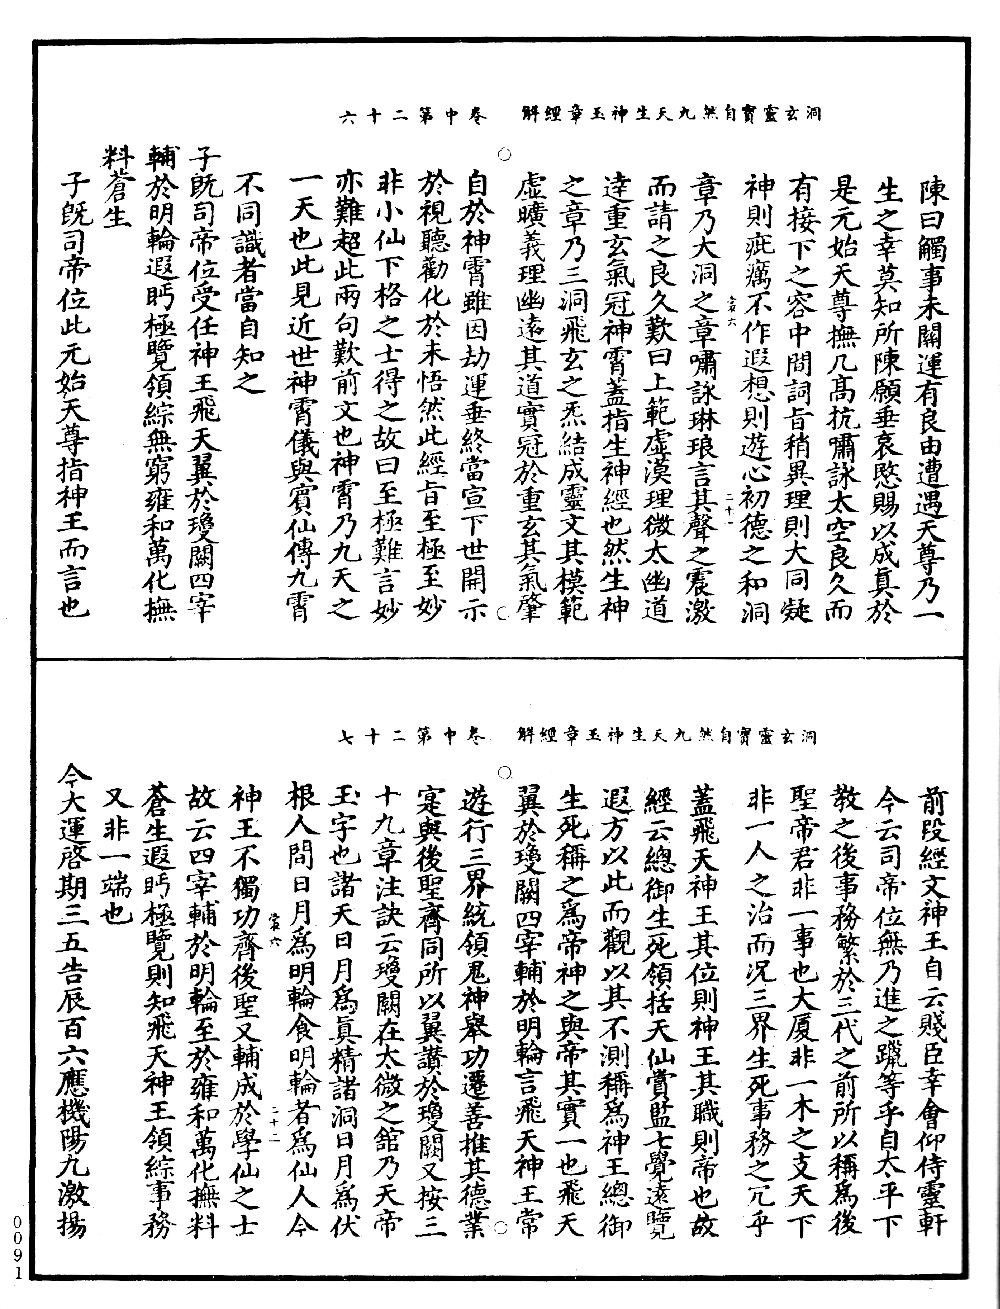 洞玄靈寶自然九天生神玉章經解　卷中第二十六
陳曰觸事未闗運有良由遭遇天尊乃一
生之幸莫知所陳願垂哀愍賜以成真於
是元始天尊撫几髙抗嘯詠太空良久而
有接下之容中間詞旨稍異理則大同凝
神則疵癘不作遐想則遊心初德之和洞
章乃大洞之章嘯詠琳琅言其聲之震激
而請之良久歎曰上範虚漠理微太幽道
達重玄氣冠神霄蓋指生神經也然生神
之章乃三洞飛玄之炁結成靈文其模範
虚曠義理幽遠其道實冠於重玄其氣肇
自於神霄雖因劫運垂終當宣下世開示
於視聽勸化於未悟然此經旨至極至妙
非小仙下格之士得之故曰至極難言妙
亦難超此兩句歎前文也神霄乃九天之
一天也此見近世神霄儀與賓仙傳九霄
不同識者當自知之
子既司帝位受任神王飛天翼於瓊闕四宰
輔於明輪遐眄極覽領綜無窮雍和萬化撫
料蒼生
子既司帝位此元始天尊指神王而言也
二十一
洞玄靈寶自然九天生神玉章經解　卷中第二十七
前段經文神王自云賤臣幸會仰侍靈軒
今云司帝位無乃進之躐等乎自太平下
教之後事務繁於三代之前所以稱為後
聖帝君非一事也大厦非一木之支天下
非一人之治而况三界生死事務之冗乎
蓋飛天神王其位則神王其職則帝也故
經云總御生死領括天仙賞監七覺遠覽
遐方以此而觀以其不測稱為神王總御
生死稱之為帝神之與帝其實一也飛天
翼於瓊闕四宰輔於明輪言飛天神王常
遊行三界統領鬼神舉功遷善推其德業
寔與後聖齊同所以翼讚於瓊闕又按三
十九章注訣云瓊闕在太微之館乃天帝
玉字也諸天日月為真精諸洞日月為伏
根人間日月為明輪食明輪者為仙人今
神王不獨功齊後聖又輔成於學仙之士
故云四宰輔於明輪至於雍和萬化撫料
蒼生遐眄極覽則知飛天神王領綜事務
又非一端也
今大運啓期三五告辰百六應機陽九激揚
二十二
0091